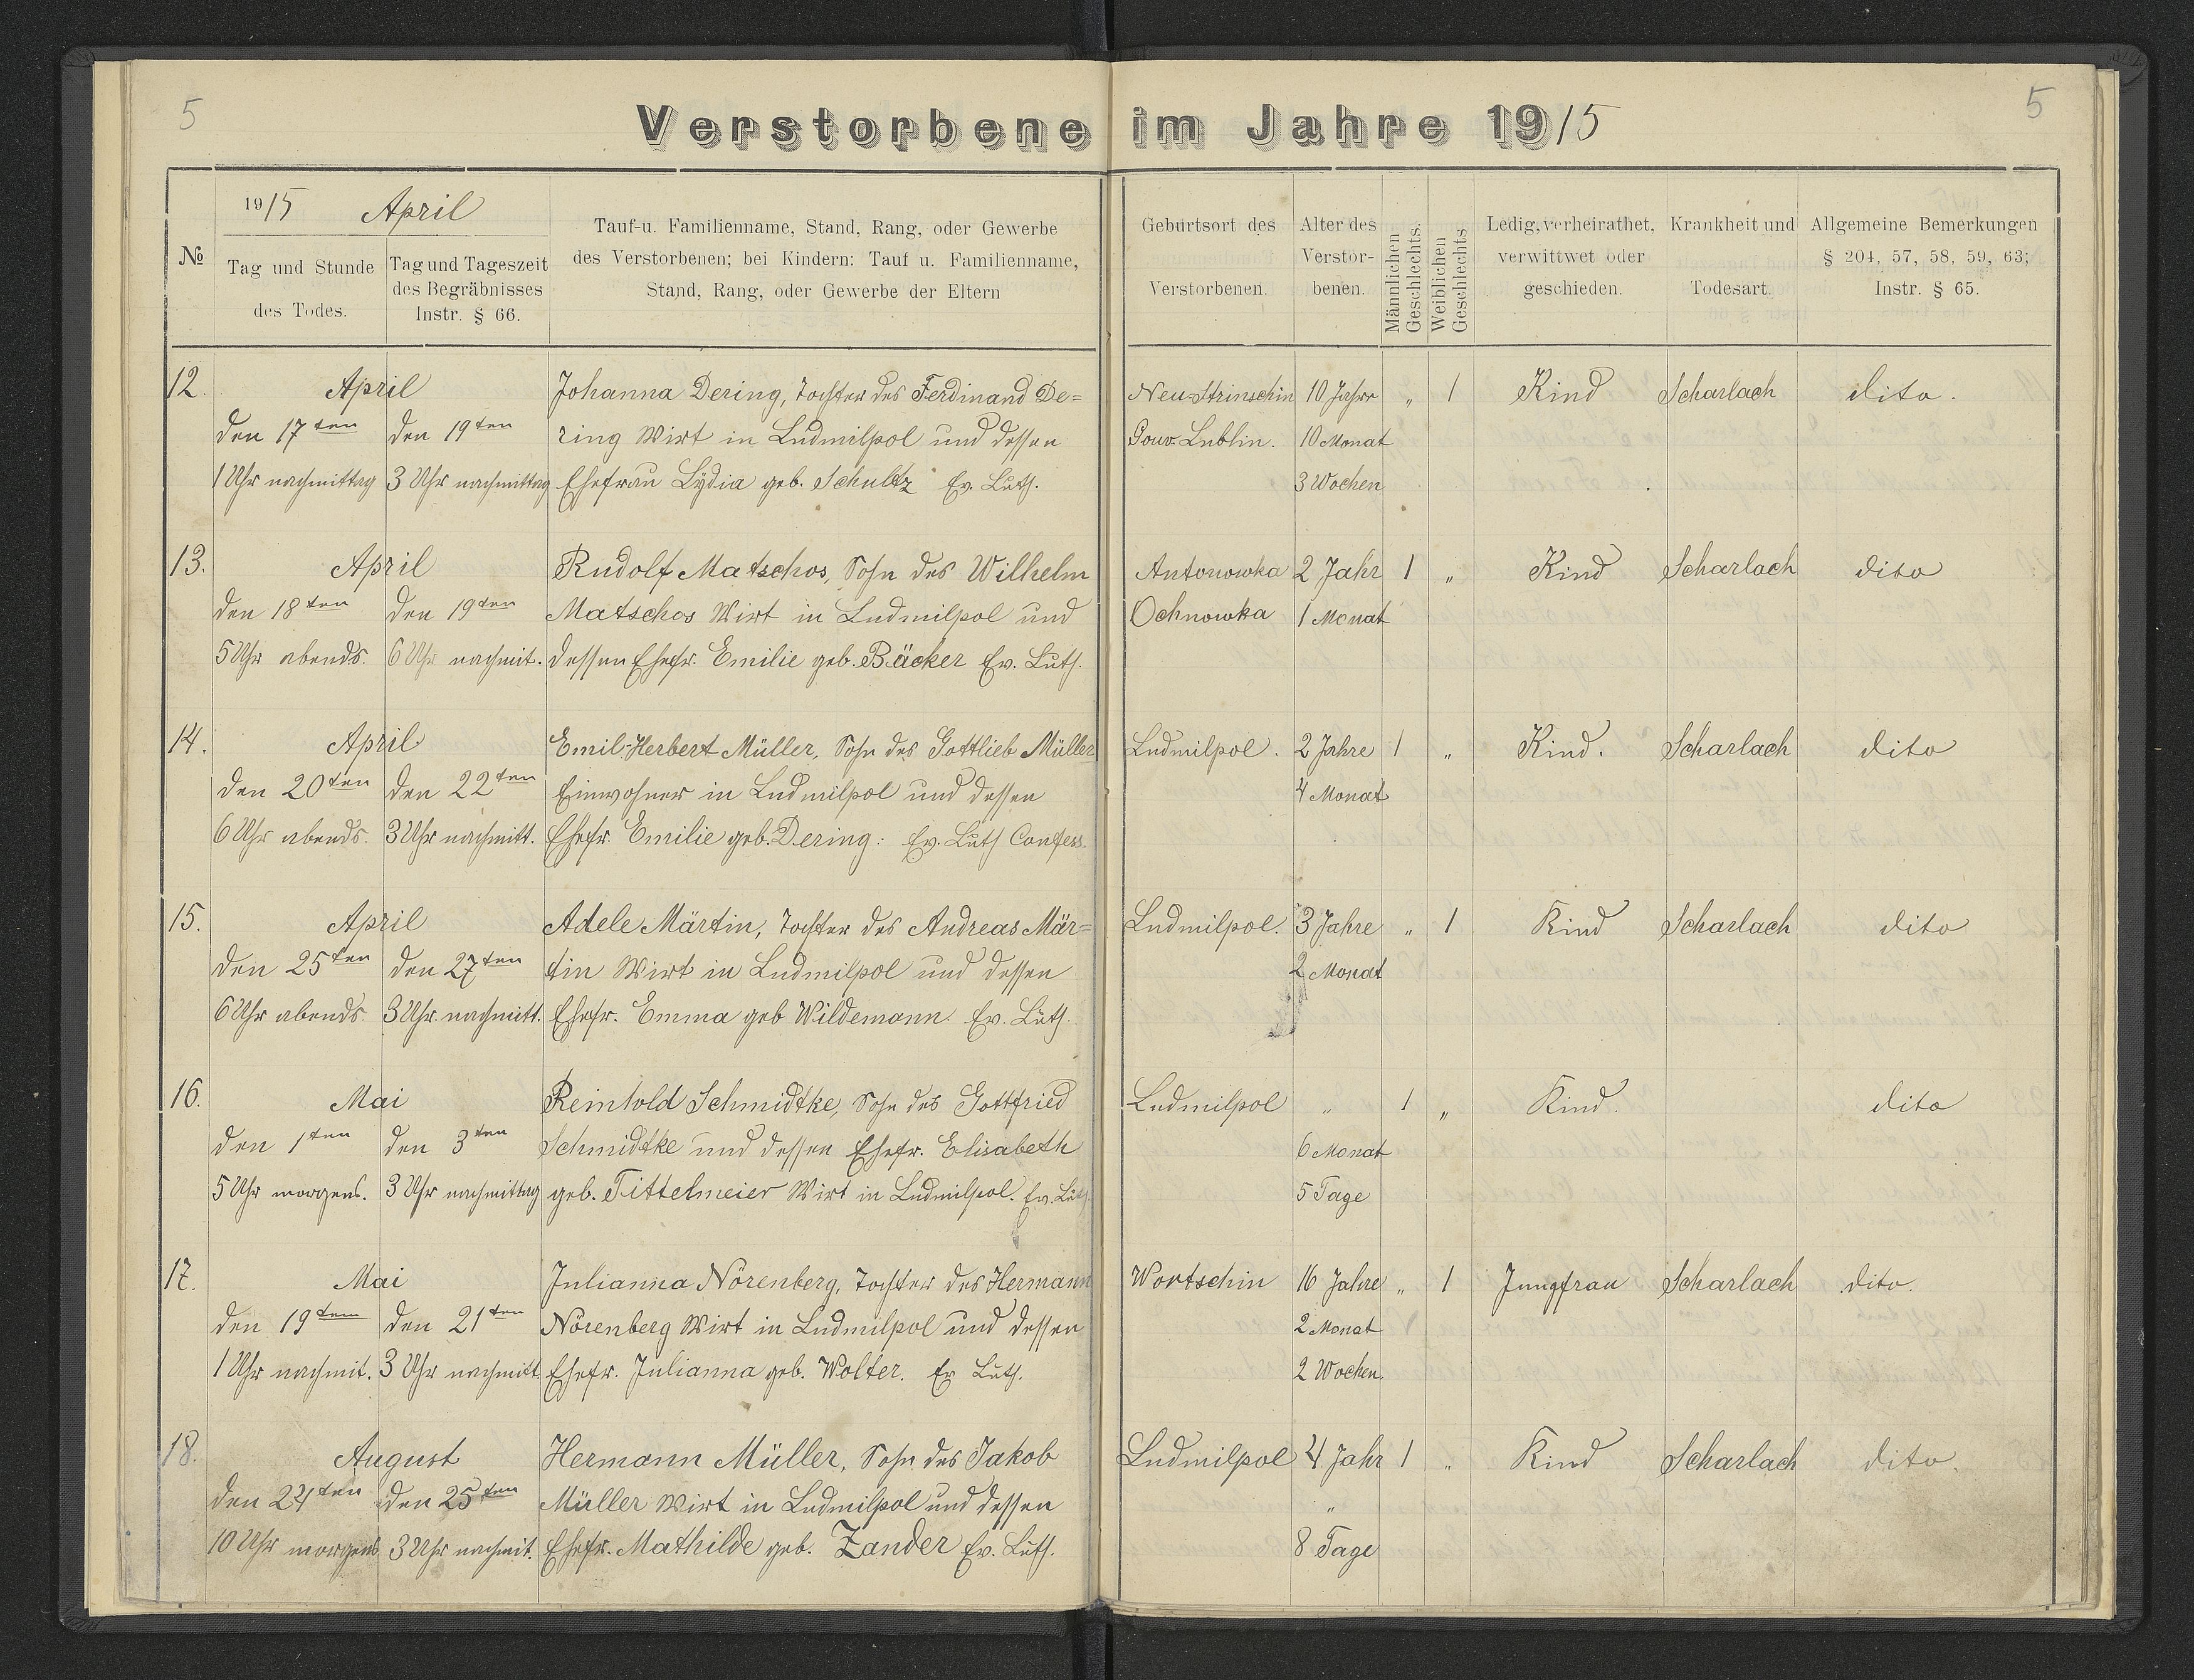 5
5
Verstorbene im Jahre 1915
№
1915 April
Tag und Stunde
des Todes.
Tag und Tageszeit
des Begräbnisses
Instr. § 66.
Tauf-u. Familienname, Stand, Rang, oder Gewerbe
des Verstorbenen; bei Kindern: Tauf u. Familienname,
Stand, Rang, oder Gewerbe der Eltern
Geburtsort des
Verstorbenen.
Alter des
Verstor-
benen.
Männlichen
Geschlechts.
Weiblichen
Geschlechts
Ledig, verheirathet,
verwittwet oder
geschieden.
Krankheit und
Todesart.
Allgemeine Bemerkungen
§ 204, 57, 58, 59, 63;
Instr. § 65.
12. April Johanna Dering, Tochter des Ferdinand De= Neu-Strinschin 10 Jahre „ 1 Kind Scharlach dito.
den 17ten den 19ten ring Wirt in Ludmilpol und dessen Gouv. Lublin. 10 Monat
1 Uhr nachmittag 3 Uhr nachmittag Ehefrau Lydia geb. Schultz Ev. Luth. 3 Wochen
13. April Rudolf Matschos, Sohn des Wilhelm Antonowka 2 Jahr 1 „ Kind Scharlach dito
den 18ten den 19ten Matschos Wirt in Ludmilpol und Ochnowka 1 Monat
5 Uhr abends. 6 Uhr nachmit. dessen Ehefr. Emilie geb. Bäcker Ev. Luth.
14. April Emil-Herbert Müller, Sohn des Gottlieb Müller Ludmilpol. 2 Jahre 1 „ Kind. Scharlach dito
den 20ten den 22ten Einwohner in Ludmilpol und dessen 4 Monat
6 Uhr abends. 3 Uhr nachmitt. Ehefr. Emilie geb. Dering: Ev. Luth Confess.
15. April Adele Märtin, Tochter des Andreas Mär= Ludmilpol. 3 Jahre „ 1 Kind Scharlach dito
den 25ten den 27ten tin Wirt in Ludmilpol und dessen 2 Monat
6 Uhr abends 3 Uhr nachmitt. Ehefr. Emma geb Wildemann. Ev. Luth.
16. Mai Reinhold Schmidtke, Sohn des Gottfried Ludmilpol „ 1 „ Kind. dito
den 1ten den 3ten Schmidtke und dessen Ehefr. Elisabeth 6 Monat
5 Uhr morgens. 3 Uhr nachmittag geb. Tittelmeier Wirt in Ludmilpol. Ev. Luth 5 Tage
17. Mai Julianna Nörenberg, Tochter des Hermann Wortschin 16 Jahre „ 1 Jungfrau Scharlach dito.
den 19ten den 21ten Nörenberg Wirt in Ludmilpol und dessen 2 Monat
1 Uhr nachmit. 3 Uhr nachmitt Ehefr. Julianna geb. Wolter. Ev Luth. 2 Wochen.
18. August Hermann Müller, Sohn des Jakob Ludmilpol 4 Jahr 1 „ Kind Scharlach dito.
den 24ten den 25ten Müller Wirt in Ludmilpol und dessen „
10 Uhr morgens 3 Uhr nachmit. Ehefr. Mathilde geb. Zander Ev. Luth. 8 Tage